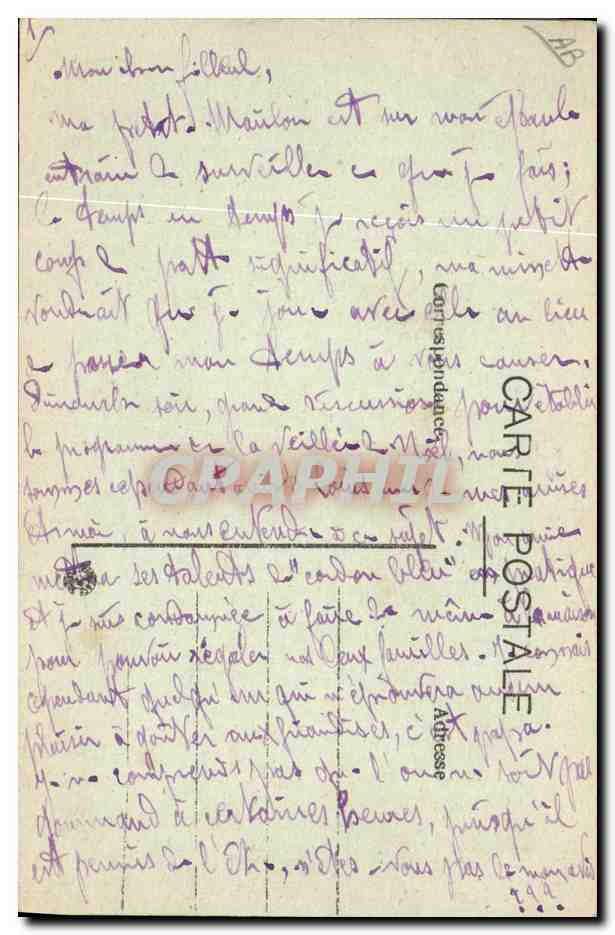 1/
AB
Mon bon filleul,
ma petite Moulou est sur mon épaule
entrain de surveiller ce que je fais ;
de temps en temps je reçois un petit
coup de patte significatif, ma minette
voudrait que je joue avec elle au lieu
de passer mon temps à vous causer.
soir, grande discussion pour établir
le programme de la veillée de Noël, nous
sommes cependant une de mes amies
et moi, à nous entendre à ce sujet. Mon amie
mettra ses talents de "cordon bleu" en pratique
et je suis condamnée à faire de même à la maison
pour pouvoir régaler nos deux familles. Je connais
cependant quelqu'un qui n'éprouvera aucun
plaisir à goûter aux friandises, c'est papa.
Je ne comprends pas que l'on ne soit pas
gourmand à certaines heures, puisqu'il
est permis de l'être, n'êtes-vous pas de mon avis
???
Correspondance
CARTE POSTALE
Adresse
CARTAPHIL